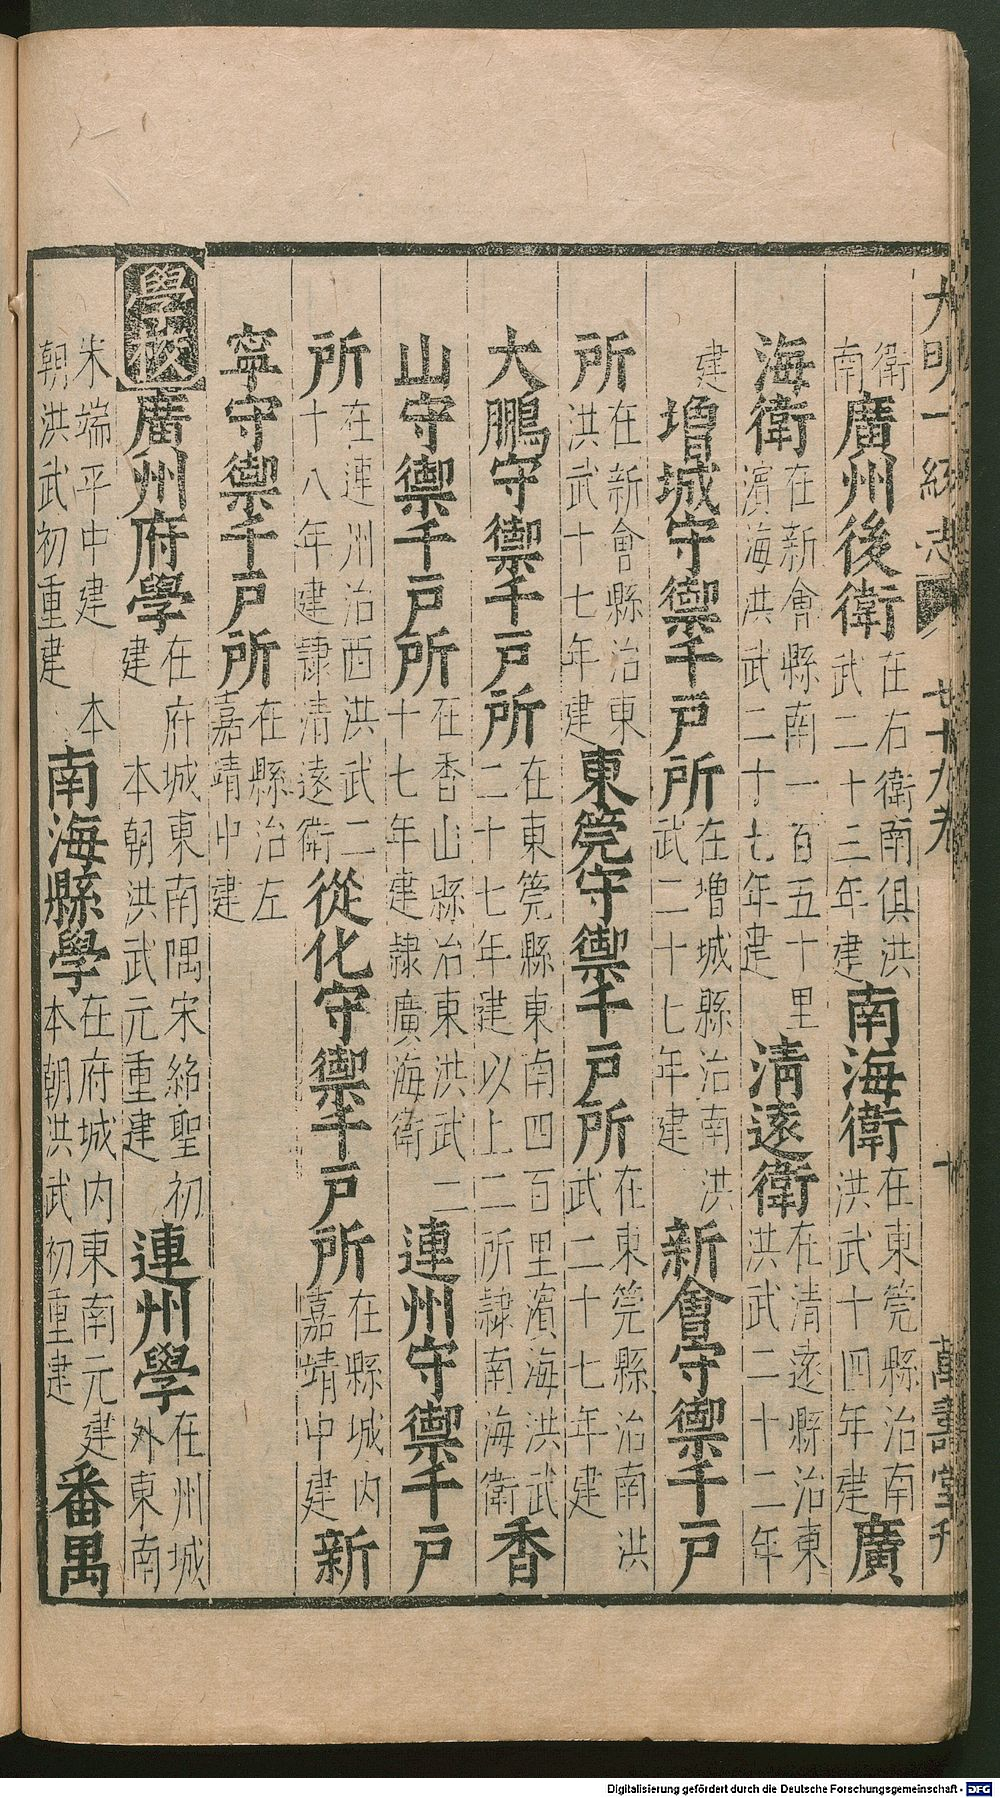 大明一統志 七十九卷 十 萬壽堂刊
衛南廣州後衛在右衛南俱洪武二十三年建南海衛在東莞縣治南洪武十四年建廣
海衛在新會縣南一百五十里濱海洪武二十七年建清遠衛在清遠縣治東洪武二十二年
建增城守禦千戶所在增城縣治南洪武二十七年建新會守禦千戶
所在新會縣治東洪武十七年建東莞守禦千戶所在東莞縣治南洪武二十七年建
大鵬守禦千戶所在東莞縣東南四百里濱海洪武二十七年建以上二所隸南海衛香
山守禦千戶所在香山縣治東洪武二十七年建隸廣海衛連州守禦千戶
所在連州治西洪武二十八年建隸清遠衛從化守禦千戶所在縣城內嘉靖中建新
寧守禦千戶所在縣治左嘉靖中建
學校廣州府學在府城東南隅宋紹聖初建 本朝洪武元重建連州學在州城外東南
宋端平中建 本朝洪武初重建南海縣學在府城內東南元建本朝洪武初重建番禺
Digitalisierung gefördert durch die Deutsche Forschungsgemeinschaft - DFG